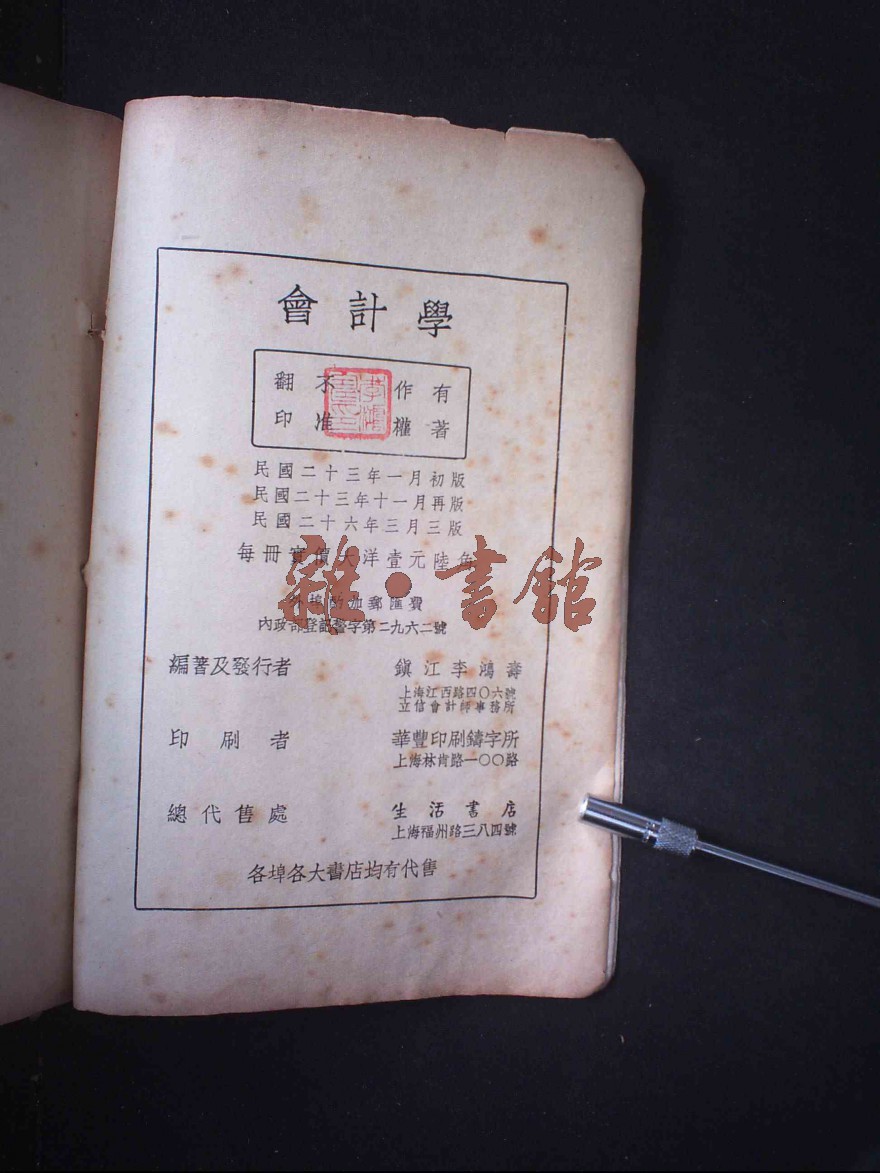 會計學
有著作權
不准翻印
民國二十三年一月初版
民國二十三年十一月再版
民國二十六年三月三版
每冊實價大洋壹元陸角
外埠酌加郵匯費
內政部登記警字第二九六二號
編著及發行者 鎭江李鴻壽
上海江西路四〇六號
立信會計師事務所
印刷者 華豐印刷鑄字所
上海林肯路一〇〇路
總代售處 生活書店
上海福州路三八四號
各埠各大書店均有代售
雜·書館